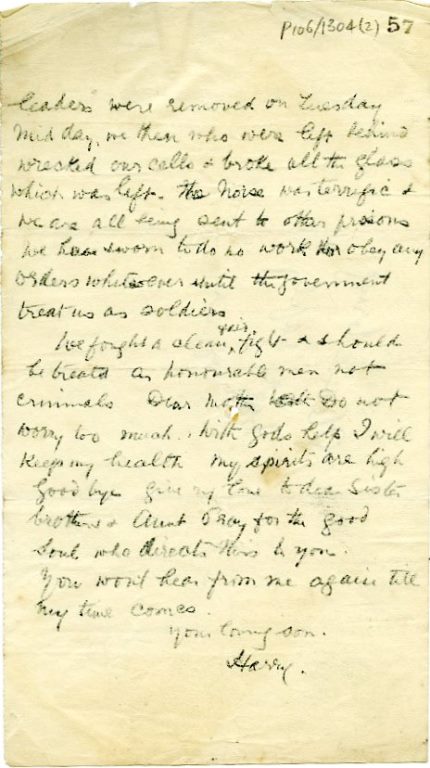 P106/1304(2) 57
leaders were removed on Tuesday
Mid day, we then who were left behind
wrecked our cells & broke all the glass
which was left. The Noise was terrific &
we are all being sent to other prisons
we have sworn to do no work nor obey any
orders whatsoever until the government
treat us as soldiers
We fought a clean, fair, fight & should
be treated as honourable men not
criminals Dear Mother Do not
worry too much. With Gods help I will
keep my health my spirits are high
Good bye give my love to dear Sister
brothers & Aunt Pray for the good
Soul who directs this to you.
You wont hear from me again till
my time comes.
Your loving son.
Harry.